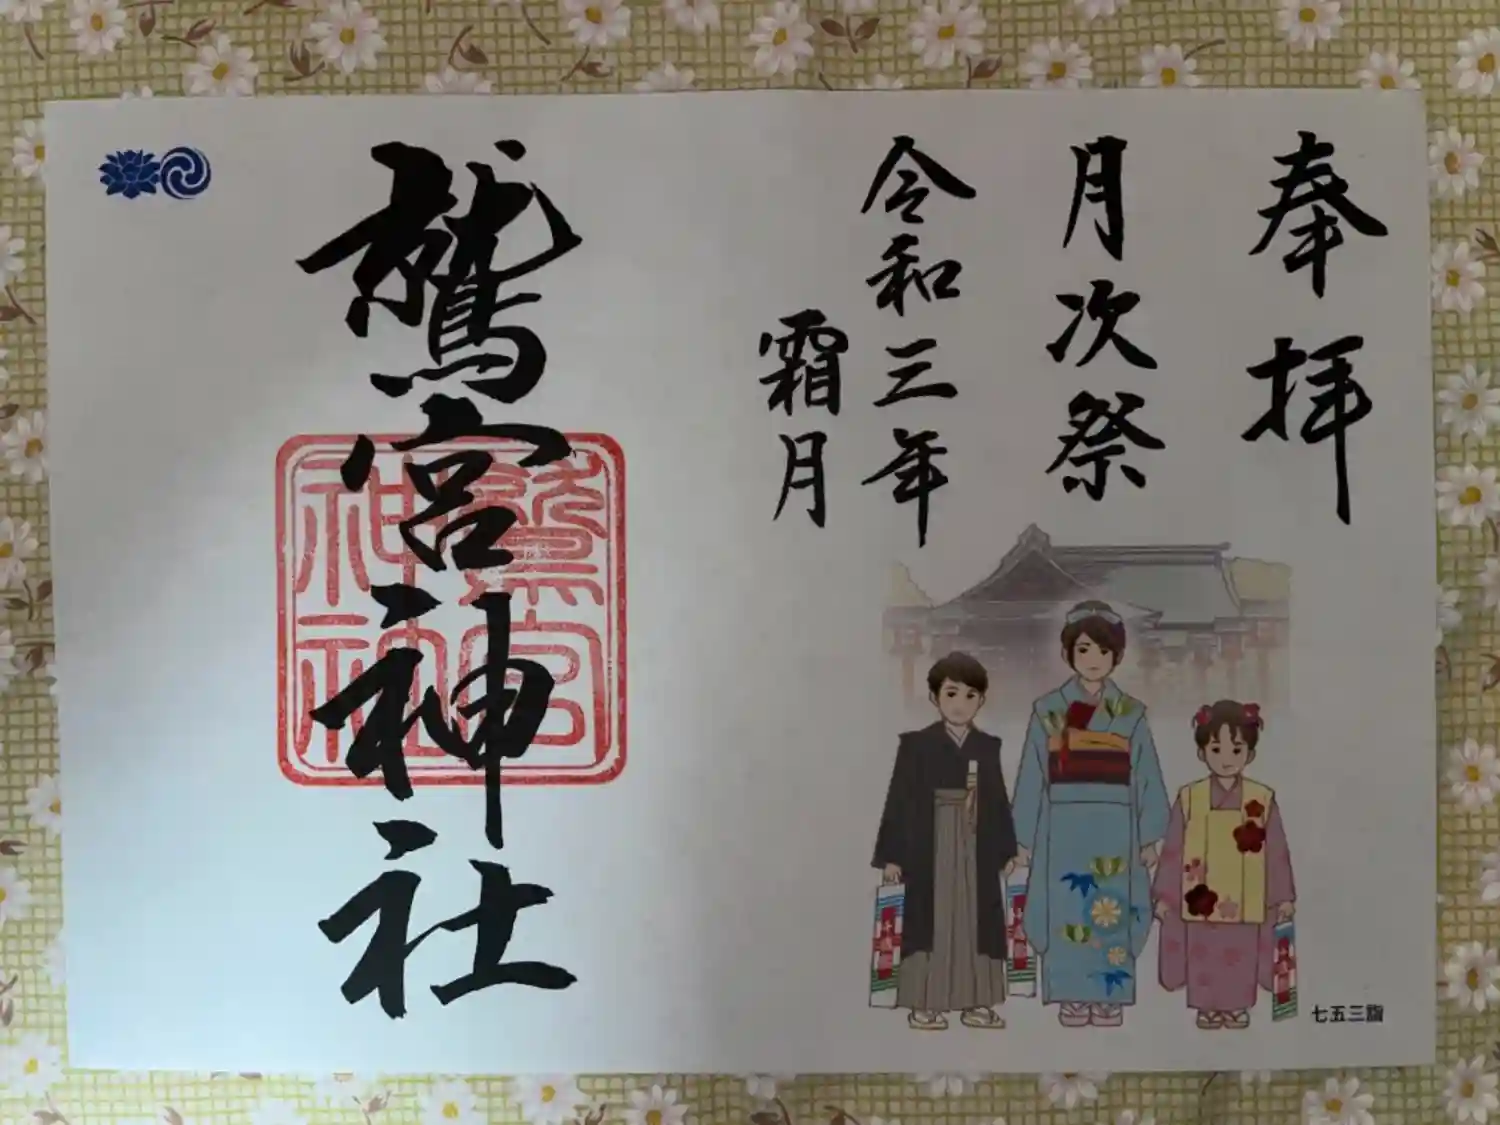 奉拝
月次祭
令和三年
霜月
鷲宮神社
鷲宮
神社
七五三詣
千歳飴